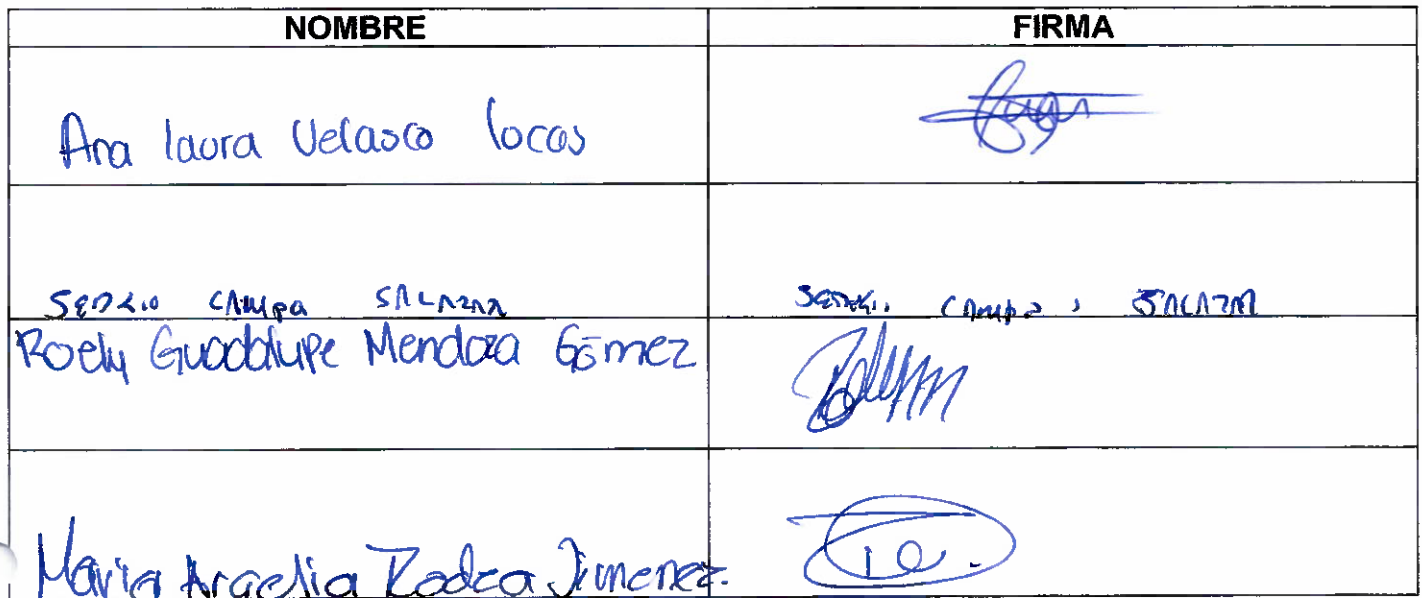 NOMBRE FIRMA
Ana laura Velasco locas
SERGIO CAMPA SALAZAR SERGIO CAMPA SALAZAR
Roely Guadalupe Mendoza Gómez
Maria Aracelia Jimenez.